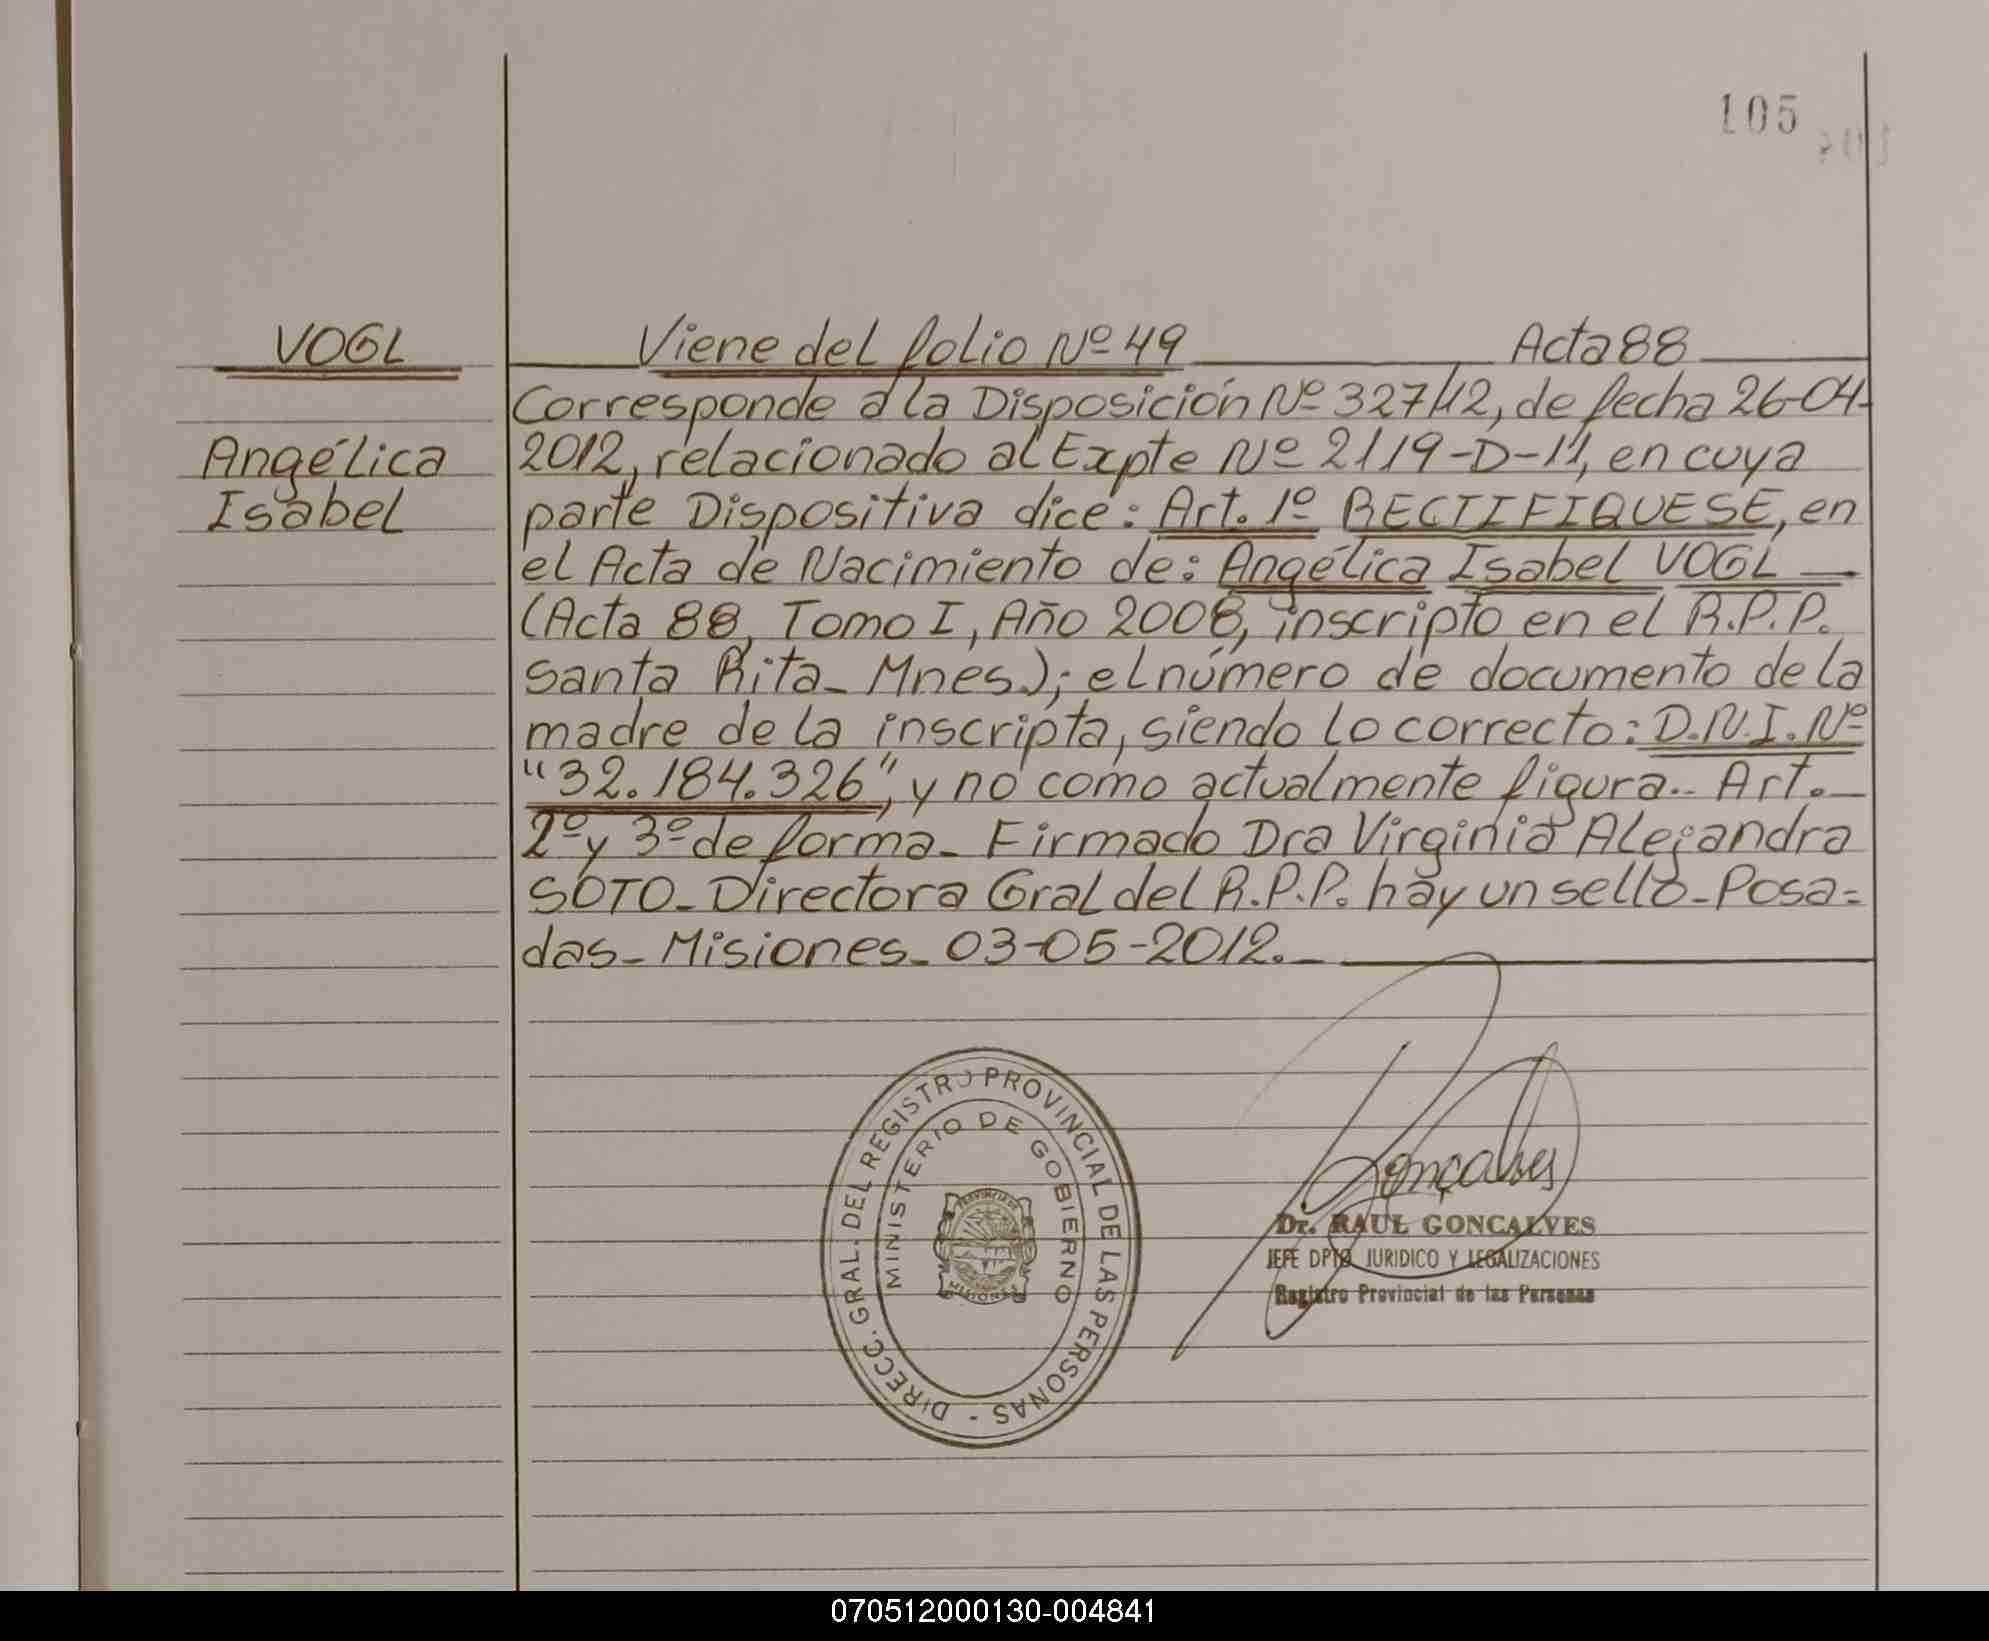 105
VOGL
Viene del folio Nº 49 Acta 88
Corresponde a la Disposición Nº 327/12, de fecha 26-04-
Angélica
2012, relacionado al Expte Nº 2119-D-11, en cuya
Isabel
parte Dispositiva dice: Art. 1º RECTIFIQUESE, en
el Acta de Nacimiento de: Angélica Isabel VOGL
(Acta 88, Tomo I, Año 2008, inscripto en el R.P.P.
Santa Rita_ Mnes.); el número de documento de la
madre de la inscripta, siendo lo correcto: D.N.I. Nº
"32.184.326", y no como actualmente figura.. Art.
2º y 3º de forma_ Firmado Dra Virginia Alejandra
SOTO_ Directora Gral del R.P.P. hay un sello_ Posa=
das_ Misiones_ 03-05-2012._
DIRECC. GRAL. DEL REGISTRO PROVINCIAL DE LAS PERSONAS -
MINISTERIO DE GOBIERNO
PROVINCIA DE
MISIONES
Gonçalves
Dr. RAUL GONCALVES
JEFE DPTO JURIDICO Y LEGALIZACIONES
Registro Provincial de las Personas
070512000130-004841